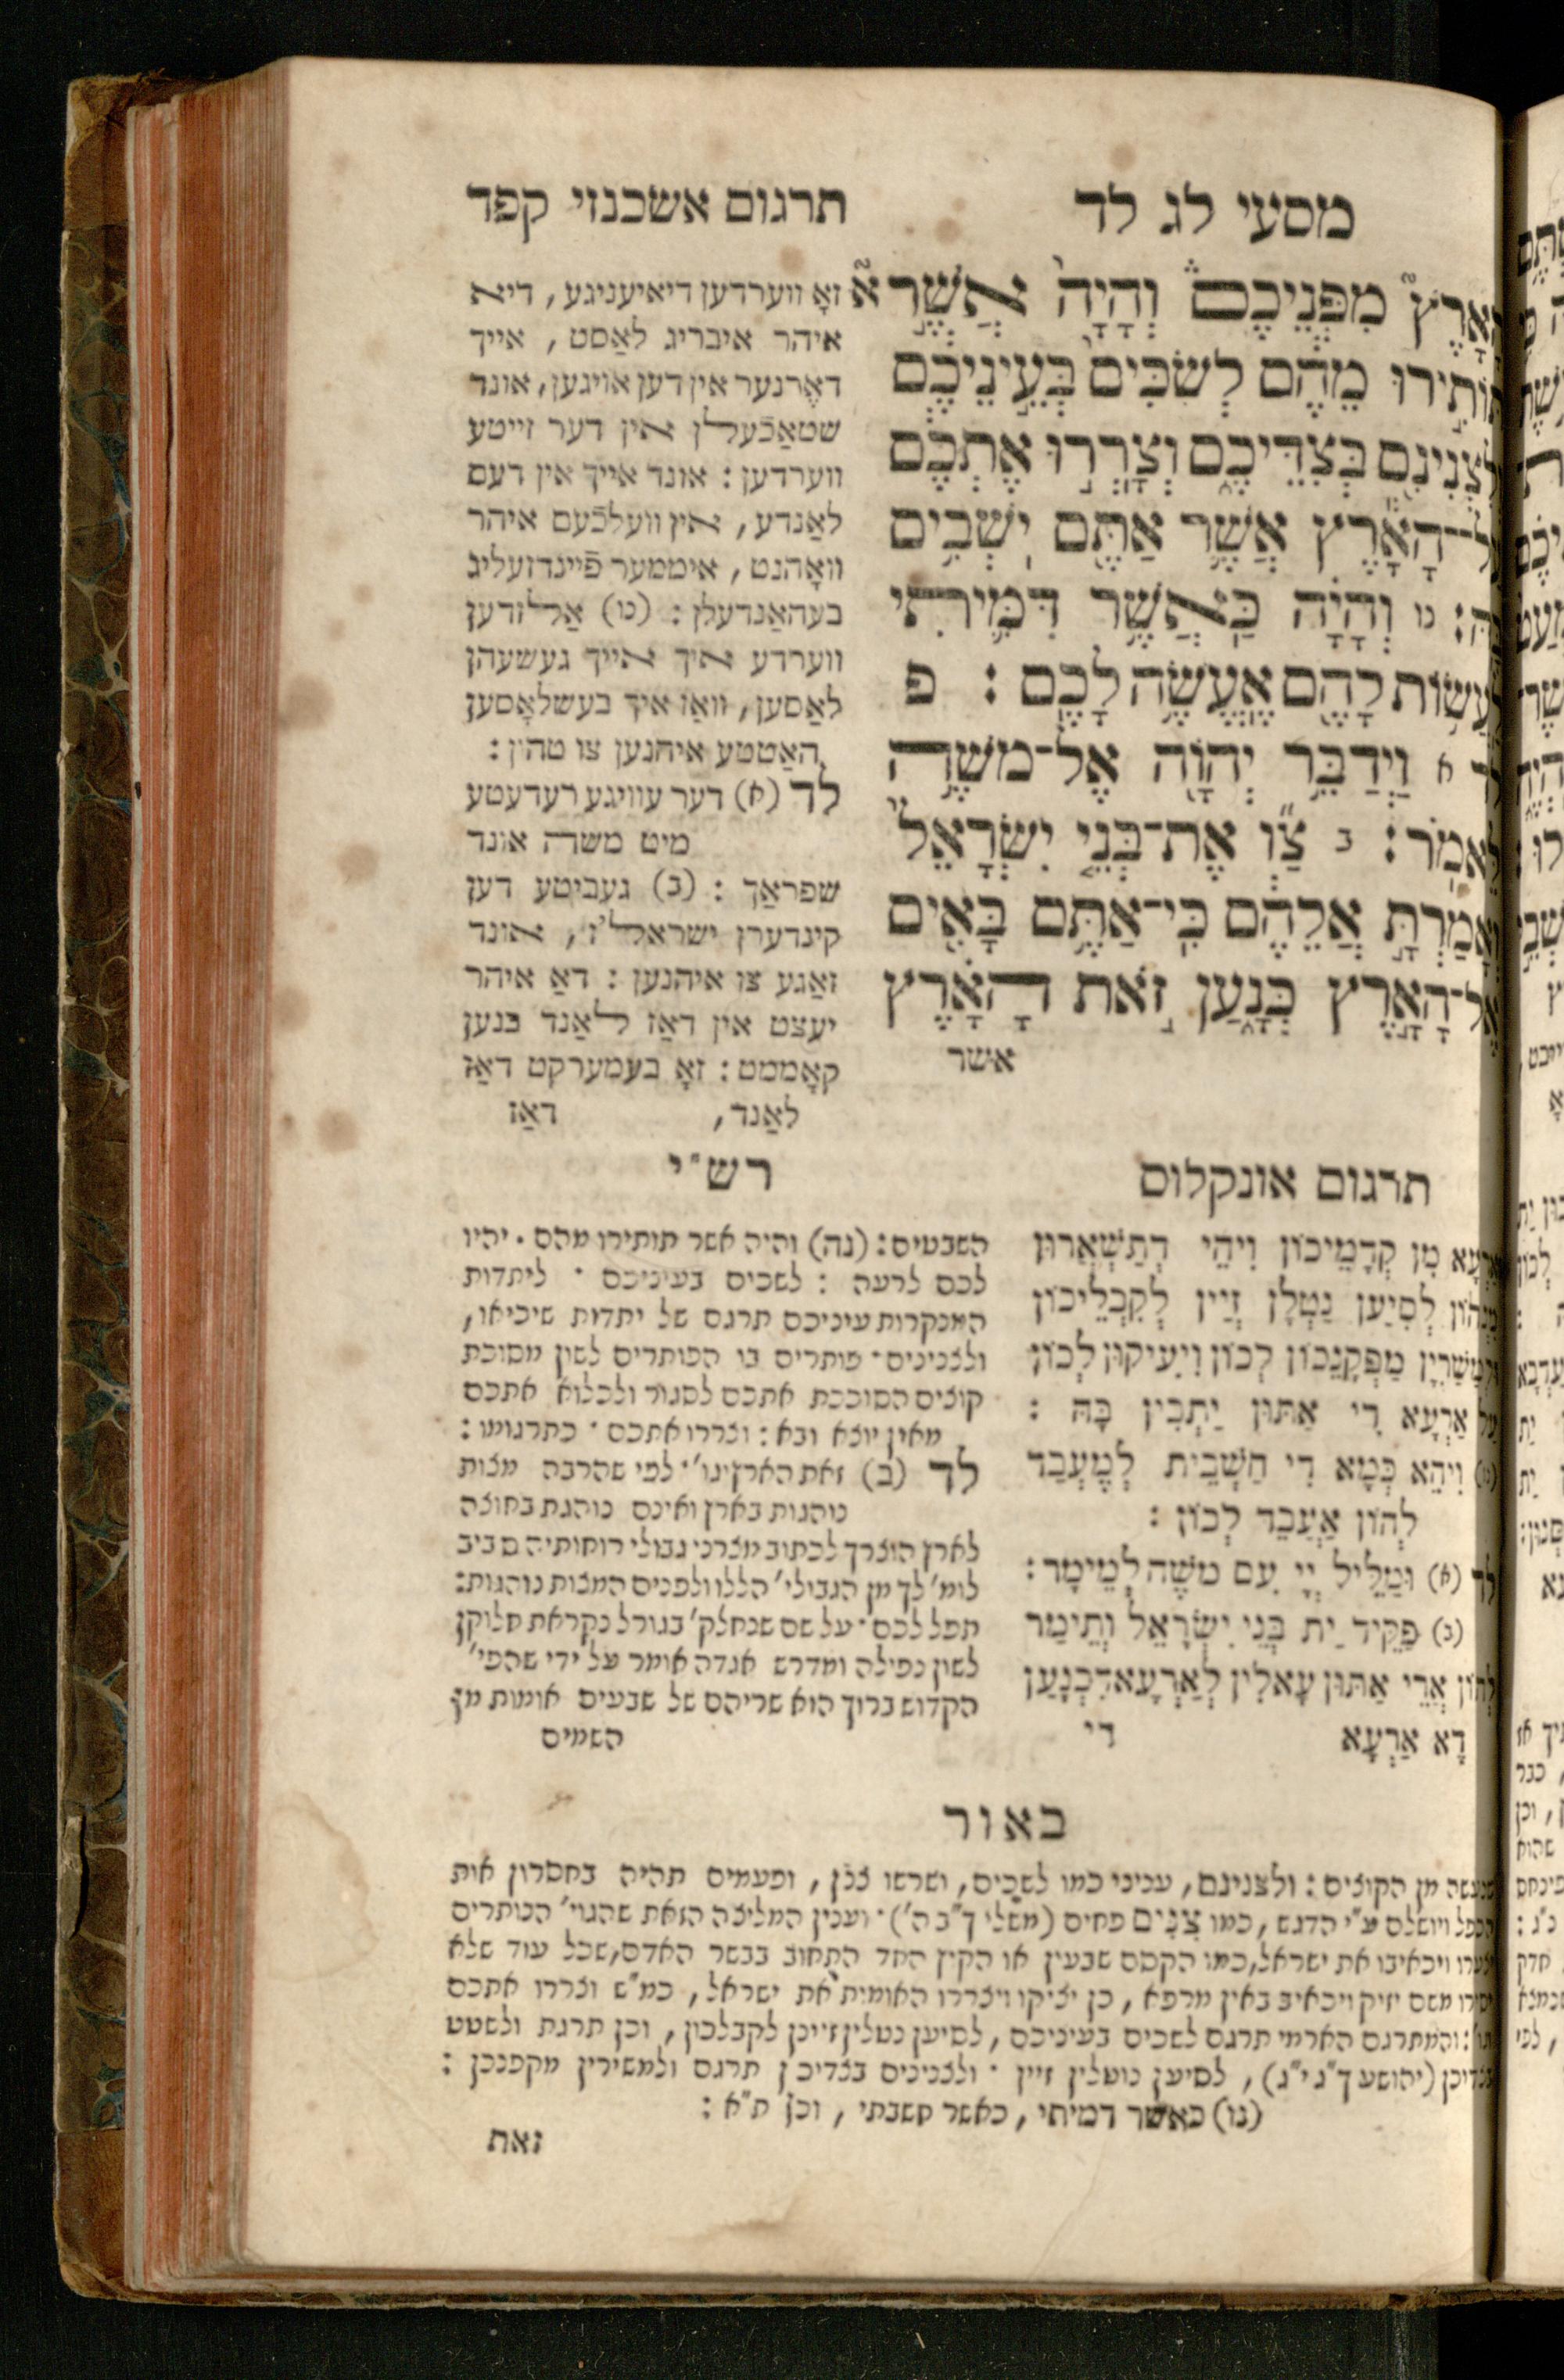 מסעי לג לד
תרגום אשכנזי קפד
הָאָרֶץ מִפְּנֵיכֶם וְהָיָה אֲשֶׁר
תּוֹתִירוּ מֵהֶם לְשִׂכִּים בְּעֵינֵיכֶם
וְלִצְנִינִם בְּצִדֵּיכֶם וְצָרְרוּ אֶתְכֶם
עַל־הָאָרֶץ אֲשֶׁר אַתֶּם יֹשְׁבִים
בָּהּ: נו וְהָיָה כַּאֲשֶׁר דִּמִּיתִי
לַעֲשׂוֹת לָהֶם אֶעֱשֶׂה לָכֶם: פ
לד א וַיְדַבֵּר יְהוָה אֶל־משֶׁה
לֵּאמֹר: ב צַו אֶת־בְּנֵי יִשְׂרָאֵל
וְאָמַרְתָּ אֲלֵהֶם כִּי־אַתֶּם בָּאִים
אֶל־הָאָרֶץ כְּנָעַן זֹאת הָאָרֶץ
אשר
זאָ ווערדען דיאיעניגע, דיא
איהר איבריג לאַסט, אייך
דאָרנער אין דען אויגען, אונד
שטאַכֿעלן אין דער זייטע
ווערדען: אונד אייך אין דעם
לאַנדע, אין וועלכֿעם איהר
וואָהנט, איממער פֿיינדזעליג
בעהאַנדעלן: (נו) אַלזדען
ווערדע איך אייך געשעהן
לאַסען, וואַז איך בעשלאָסען
האַטטע איהנען צו טהון:
לד (א) דער עוויגע רעדעטע
מיט משה אונד
שפראַך: (ב) געביטע דען
קינדערן ישראל'ז, אונד
זאַגע צו איהנען: דאַ איהר
יעצט אין דאַז לאַנד כנען
קאָממט: זאָ בעמערקט דאַז
לאַנד, דאַז
תרגום אונקלוס
אַרְעָא מִן קֳדָמֵיכוֹן וִיהֵי דְתַשְׁאֲרוּן
מִנְּהוֹן לְסִיעָן נָטְלָן זֵיִין לְקִבְלֵיכוֹן
וּלְמַשִׁרְיָן מַקְּפָנֵכוֹן לְכוֹן וִיעִיקוּן לְכוֹן
עַל אַרְעָא דִי אַתּוּן יָתְבִין בָּהּ:
(נו) וִיהֵא כְּמָא דִי חַשָׁבִית לְמֶעְבַּד
לְהוֹן אַעֲבֵד לְכוֹן:
לד (א) וּמַלֵּיל יְיָ עִם משֶׁה לְמֵימָר:
(ב) פַּקֵּיד יַת בְּנֵי יִשְׂרָאֵל וְתֵימַר
לְהוֹן אֲרֵי אַתּוּן עָאלִין לְאַרְעָא דִכְנָעַן
דָא אַרְעָא די
רש״י
השבטים: (נה) והיה אשר תותירו מהם. יהיו
לכם לרעה: לשכים בעיניכם · ליתדות
המנקרות עיניכם תרגם של יתדות שיכיא,
ולצנינים · פותרים בו הפותרים לשון מסוכת
קוצים הסוככת אתכם לסגור ולכלוא אתכם
מאין יוצא ובא: וצררו אתכם · כתרגומו:
לד (ב) זאת הארץ וגו' · לפי שהרבה מצות
נוהגות בארץ ואינם נוהגת בחוצה
לארץ הוצרך לכתוב מצרני גבולי רוחותיה סביב
לומ' לך מן הגבולי' הללו ולפנים המצות נוהגות:
תפל לכם · על שם שנחלק' בגורל נקראת חלוקן
לשון נפילה ומדרש אגדה אומר על ידי שהפי'
הקדוש ברוך הוא שריהם של שבעים אומות מן
השמים
באור
שנעשה מן הקוצים: ולצנינם, ענינו כמו לשכים, ושרשו צנן, ופעמים תהיה בחסרון אות
הכפל ויושלם ע"י הדגש, כמו צִנִּים פחים (משלי ך"ב ה') · וענין המליצה הזאת שהגוי' הנותרים
יצערו ויכאיבו את ישראל, כמו הקסם שבעין או הקוץ החד התחוב בבשר האדם, שכל עוד שלא
יסירו משם יזיק ויכאיב באין מרפא, כן יציקו ויצררו האומות את ישראל, כמ"ש וצררו אתכם
וגו': והמתרגם הארמי תרגם לשכים בעיניכם, לסיען נטלין זייכן לקבלכון, וכן תרגם ולשטט
בצדיכן (יהושע ך"ג י"ג), לסיען נוטלין זיין · ולצנינים בצדיכן תרגם ולמשירין מקפנכן:
(נו) כאשר דמיתי, כאשר חשבתי, וכן ת"א:
זאת